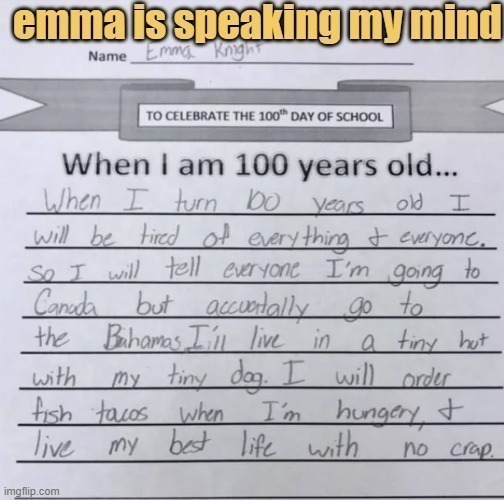 emma is speaking my mind
Name Emma Knight
TO CELEBRATE THE 100th DAY OF SCHOOL
When I am 100 years old...
When I turn 100 years old I
will be tired of everything & everyone.
So I will tell everyone I'm going to
Canada but accuertally go to
the Bahamas. I'll live in a tiny hut
with my tiny dog. I will order
fish tacos when I'm hungery, &
live my best life with no crap.
imgflip.com